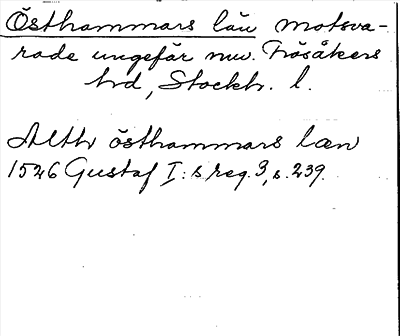 Östhammars län motsva-
rade ungefär nuv. Frösåkers
hrd, Stockh. l.
Alth östhammars læn
1526 Gustaf I:s reg. 3, s. 239.